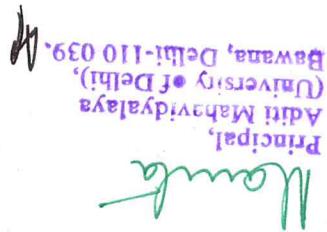 Mamta
Principal,
Aditi Mahavidyalaya
(University of Delhi),
Bawana, Delhi-110 039.